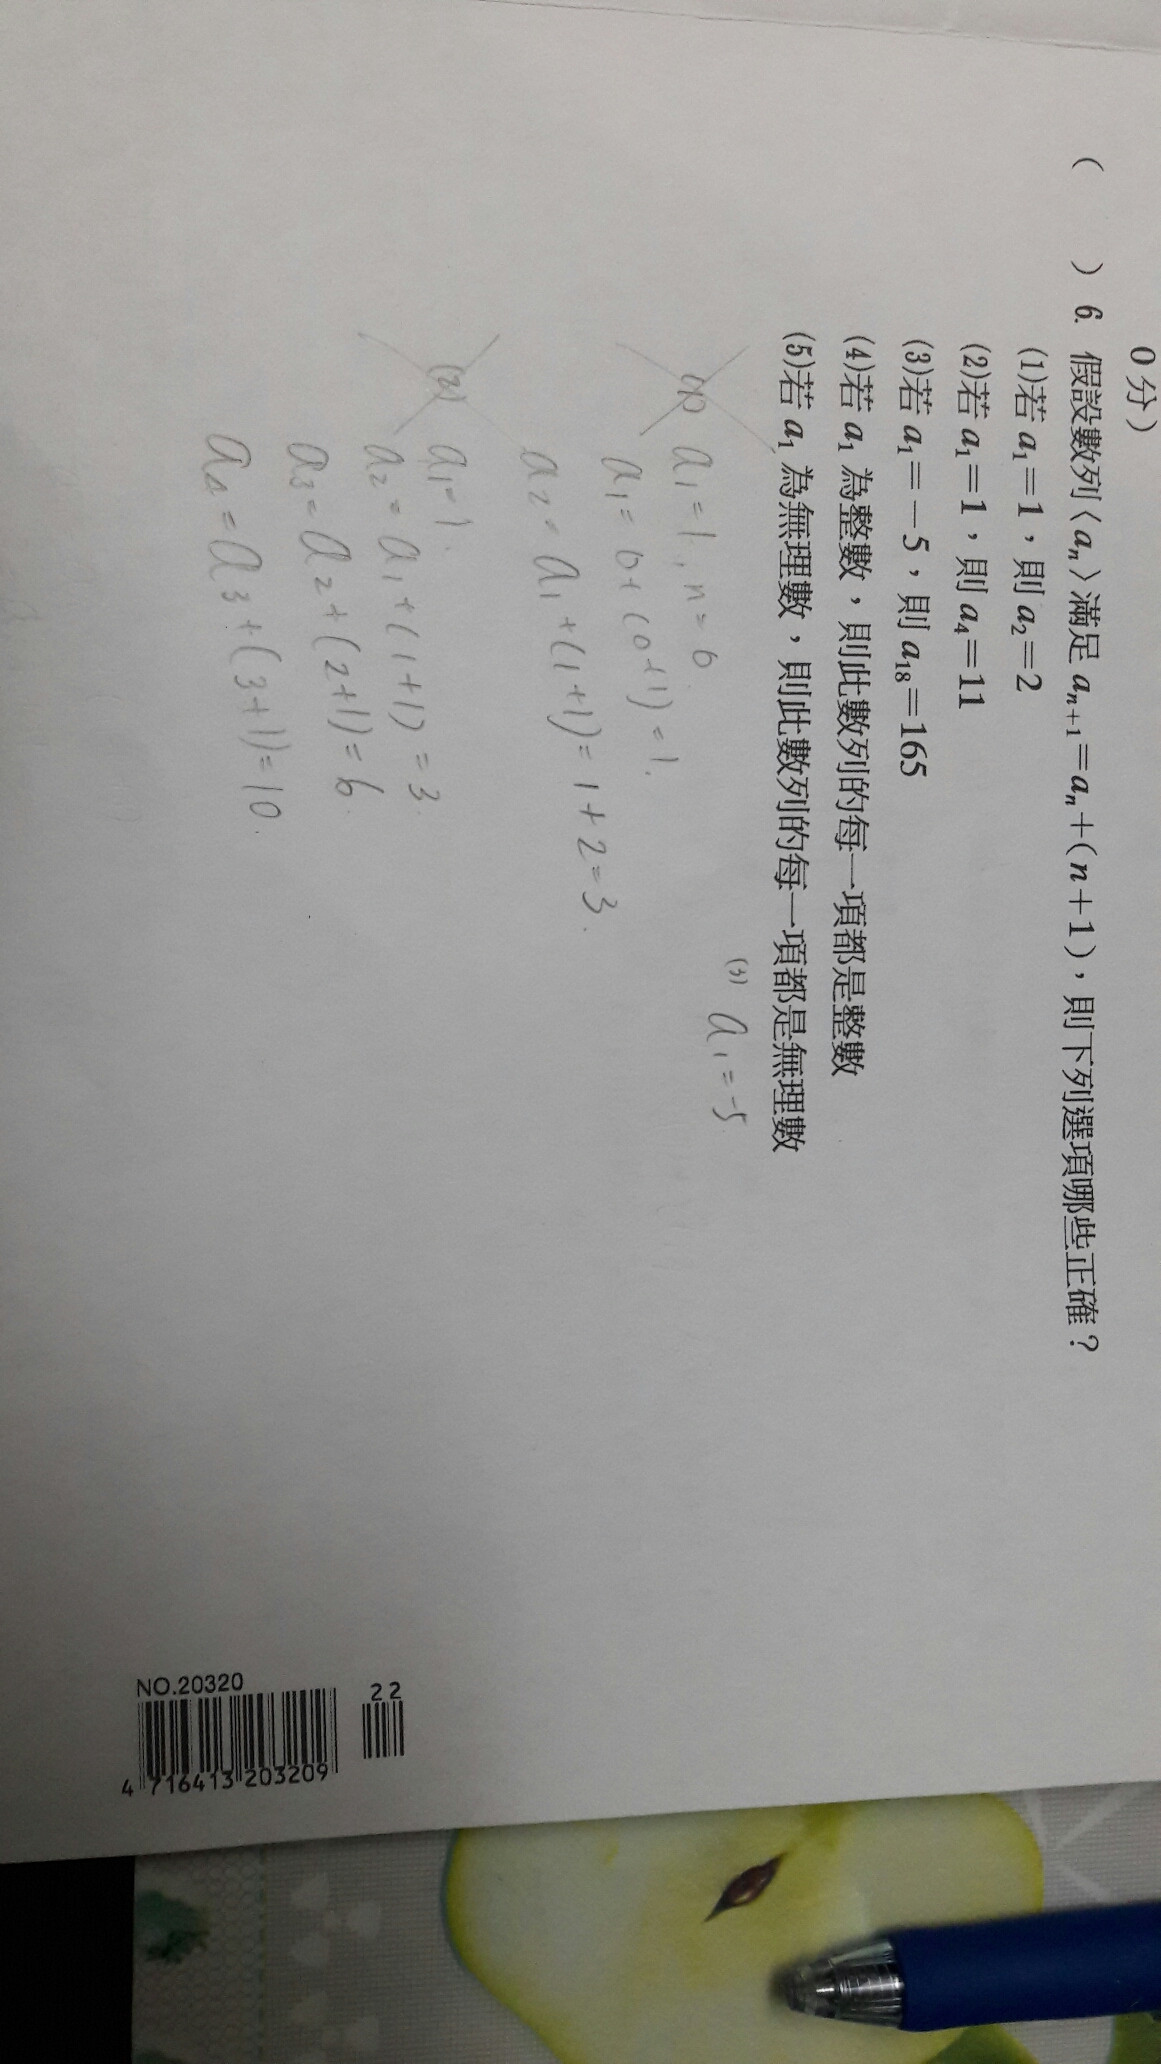 0分)
(　　) 6. 假設數列〈aₙ〉滿足 aₙ₊₁=aₙ+(n+1),則下列選項哪些正確?
(1)若 a₁=1,則 a₂=2
(2)若 a₁=1,則 a₄=11
(3)若 a₁=-5,則 a₁₈=165
(4)若 a₁ 為整數,則此數列的每一項都是整數
(5)若 a₁ 為無理數,則此數列的每一項都是無理數
(3) a₁=-5
(1) a₁=1, n=0
a₁=0+(0+1)=1.
a₂=a₁+(1+1)=1+2=3.
(2) a₁=1.
a₂=a₁+(1+1)=3
a₃=a₂+(2+1)=6
a₄=a₃+(3+1)=10.
NO.20320
22
4 716413 203209